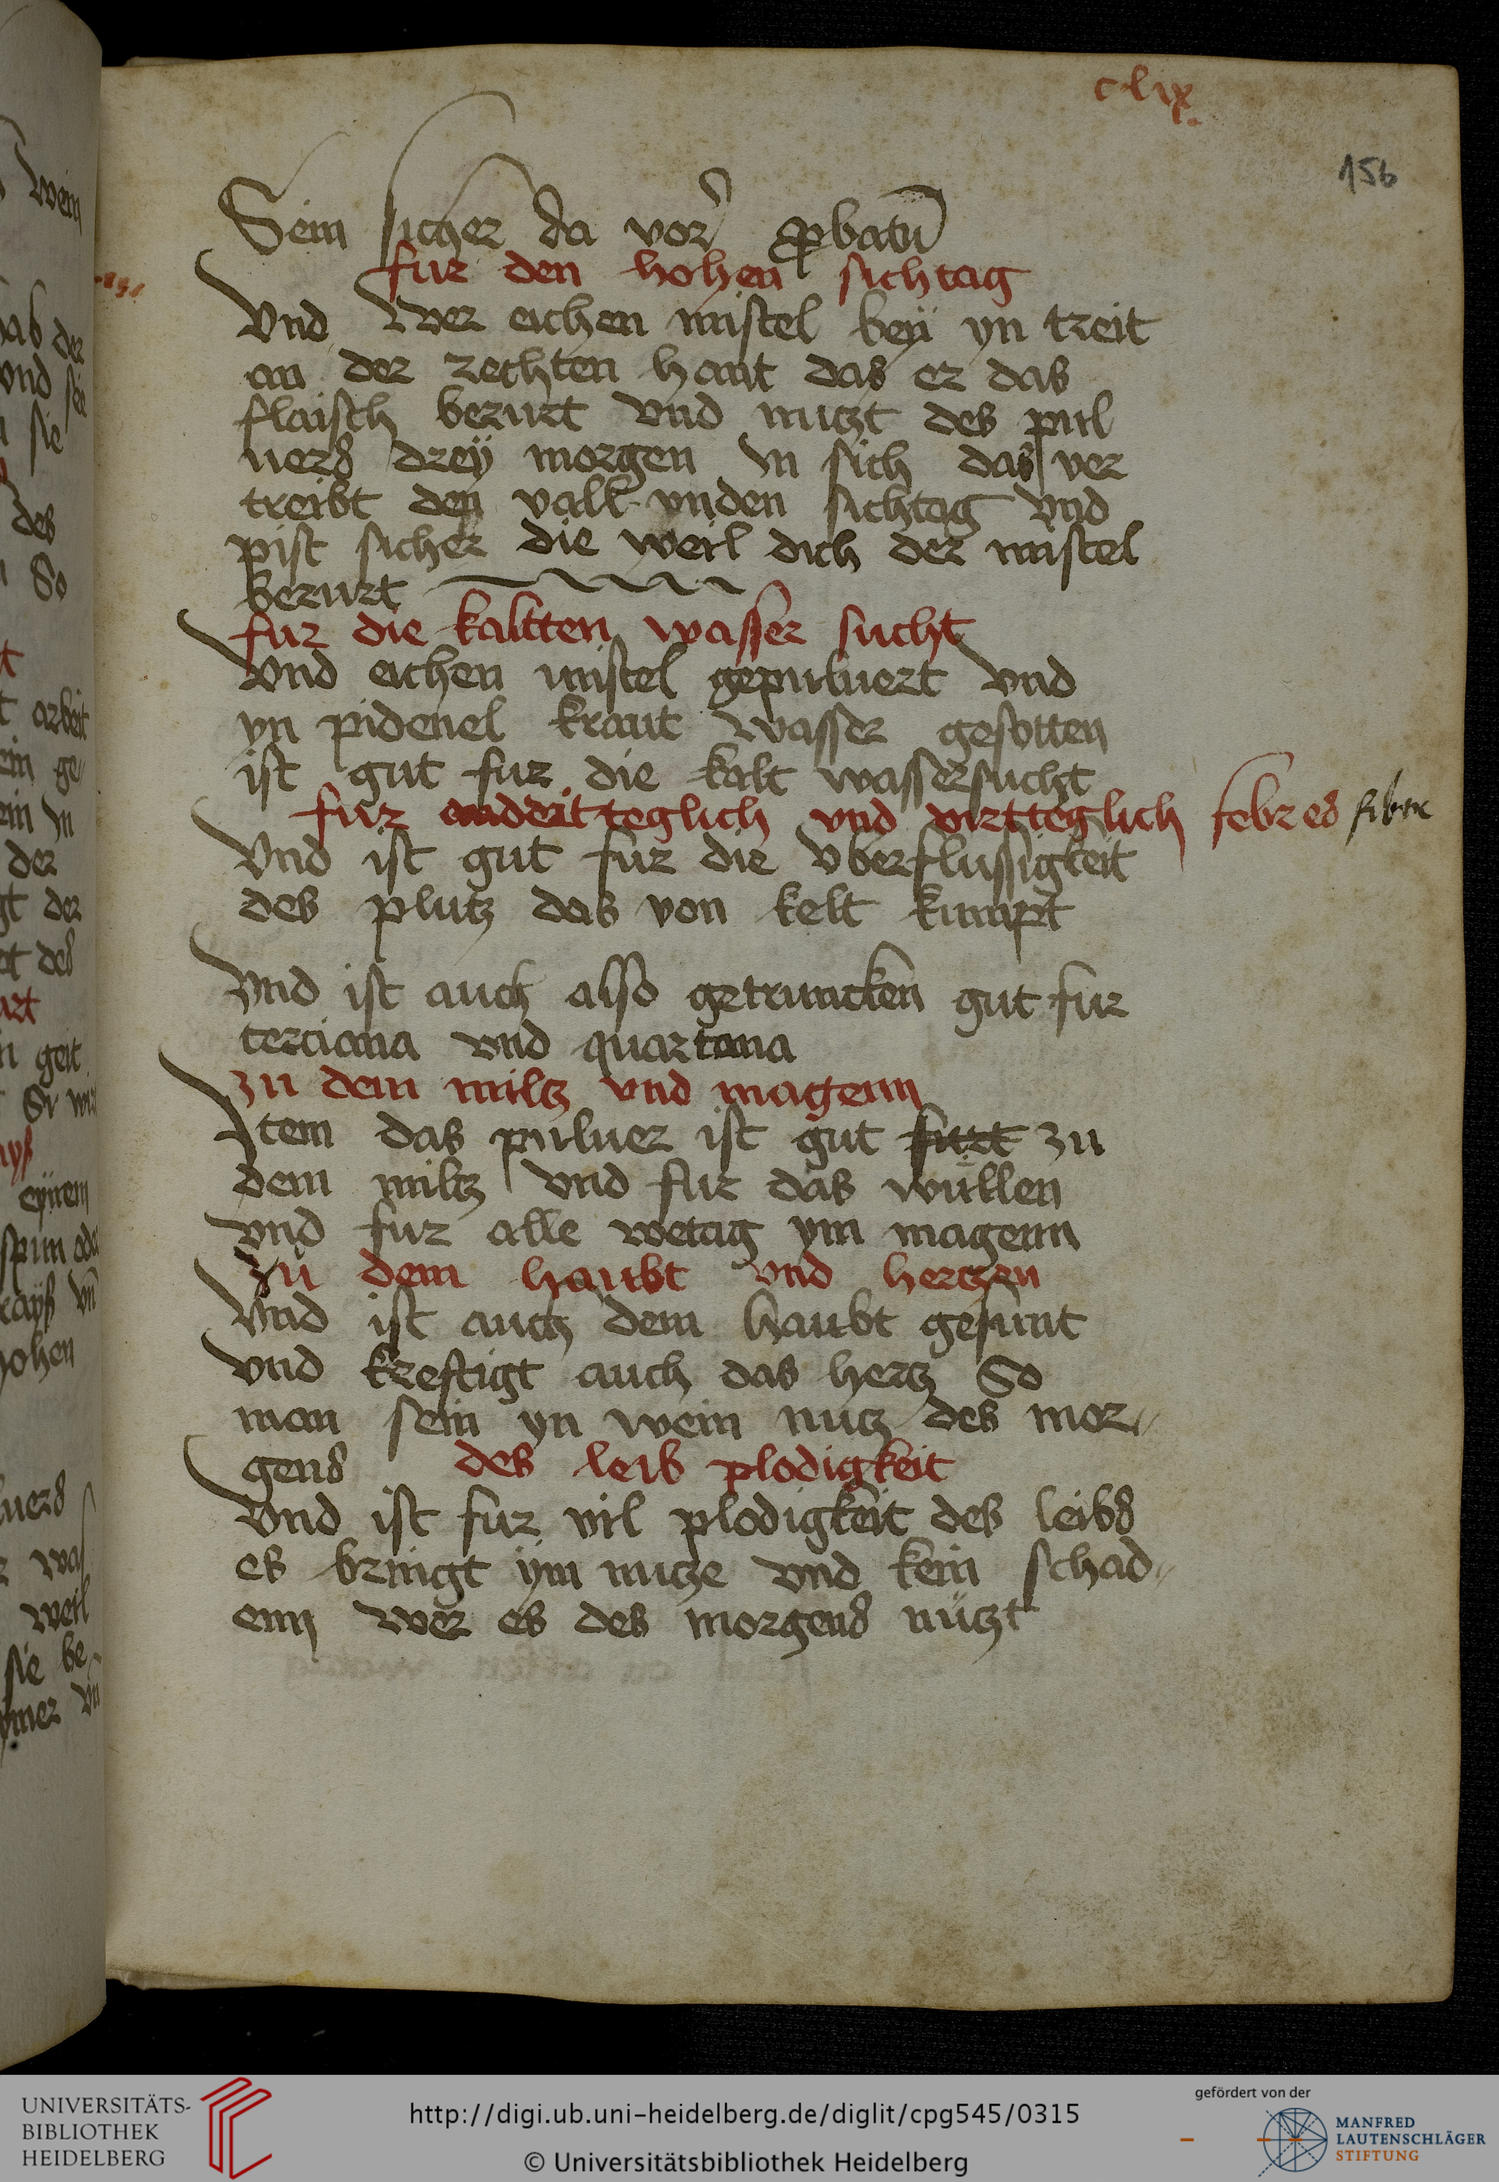 clix
156
Sein sicher da vor probatū
fur den hohen sichtag
Vnd Wer eichen mistel beÿ yn treit
an der rechten hant das er das
flaisch berurt vnd nuczt des pul
uers dreÿ morgen In sich das ver
treibt den vall vnden sichtag vnd
pist sicher die weil dich der mistel
berurt
fur die kaltten wasser sucht
Vnd eichen mistel gepuluert vnd
yn pidenel kraut wasser gesotten
ist gut fur die kalt wassersucht
fur dritteglich vnd virtteglich febres
Vnd ist gut fur die vberflussigkeit
des plutz das von kelt kumpt
Vnd ist auch also getruncken gut fur
terciana vnd quartana
zu dem miltz vnd magenn
Item das puluer ist gut furt zu
dem miltz vnd fur das wullen
vnd fur alle wetag ym magenn
Zu dem haubt vnd hertzen
Vnd ist auch dem haubt gesunt
vnd kreftigt auch das hertz So
man sein yn wein nutz des mor„
gens des leib plodigkeit
Vnd ist fur vil plodigkeit des leibs
es bringt ÿm nucze vnd kein schad„
enn wer es des morgens nuczt
UNIVERSITÄTS-
BIBLIOTHEK
HEIDELBERG
http://digi.ub.uni-heidelberg.de/diglit/cpg545/0315
© Universitätsbibliothek Heidelberg
gefördert von der
MANFRED
LAUTENSCHLÄGER
STIFTUNG